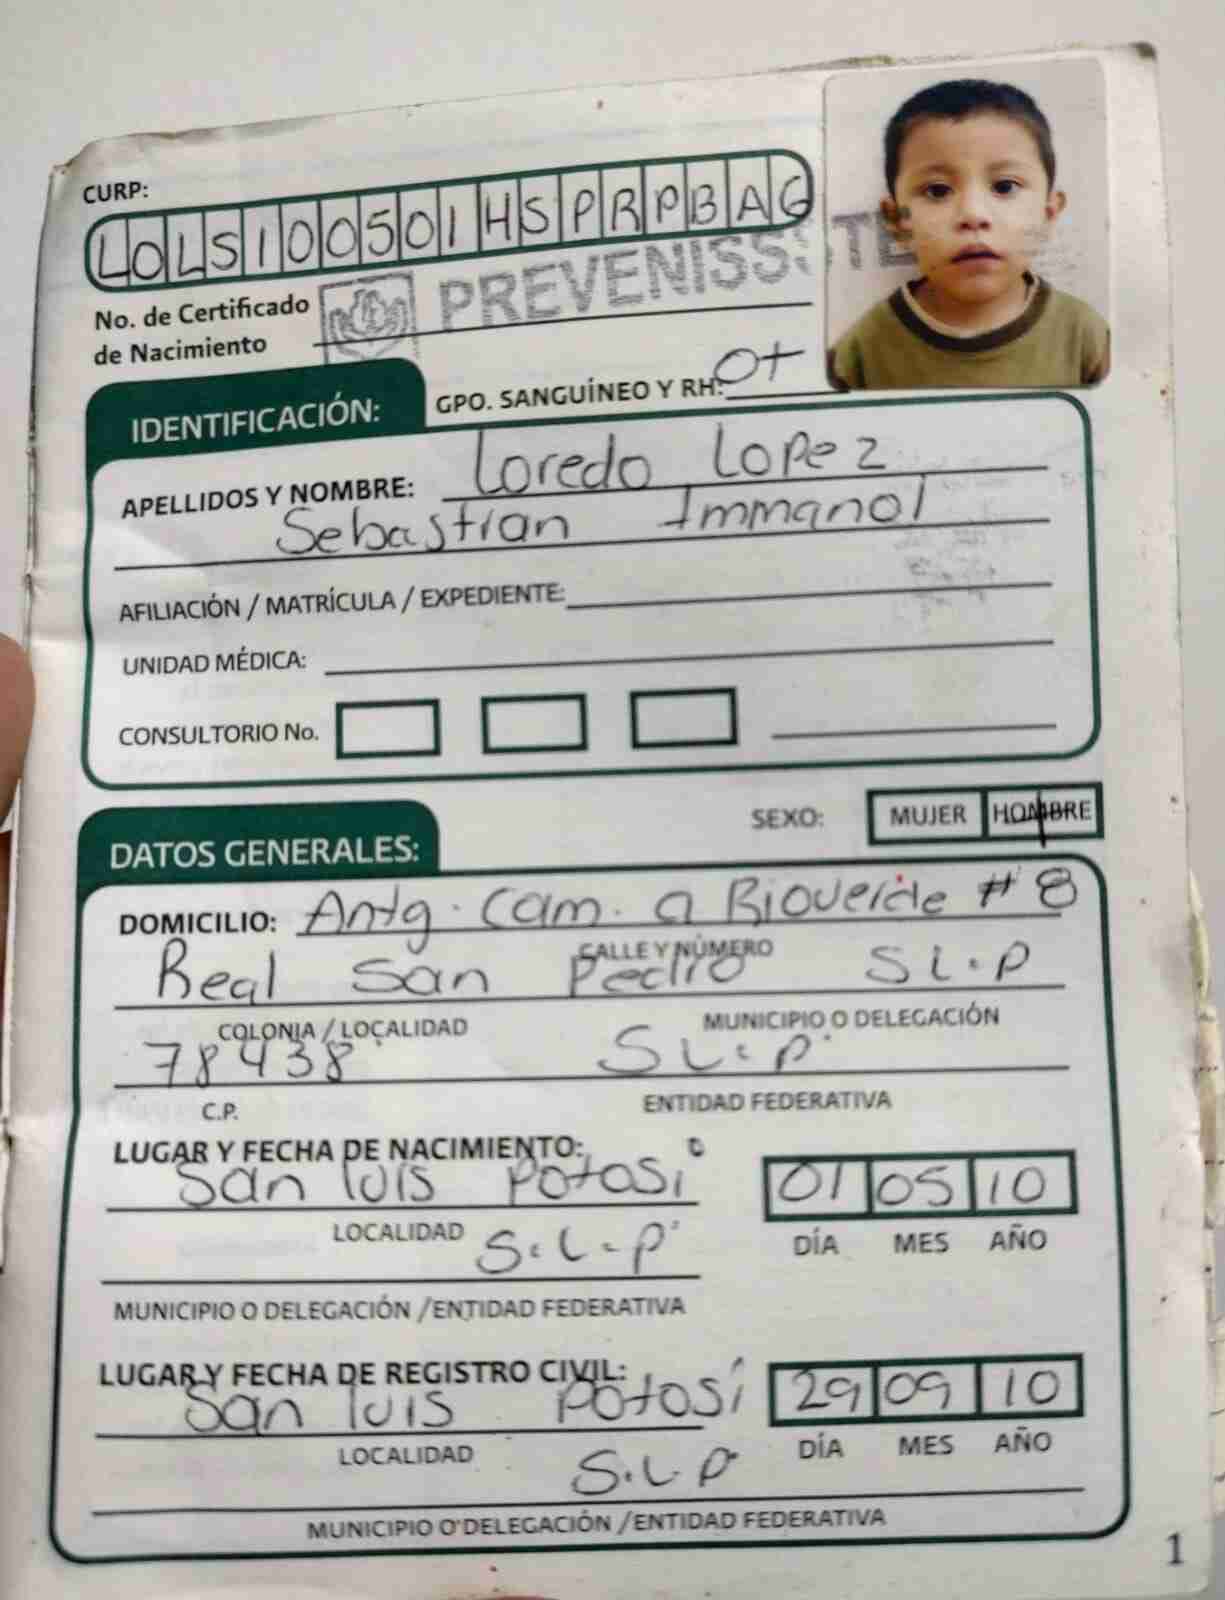 CURP:
LOLS100501HSPRPBAG
PREVENISSSTE
No. de Certificado
de Nacimiento
GPO. SANGUÍNEO Y RH: O+
IDENTIFICACIÓN:
APELLIDOS Y NOMBRE: Loredo Lopez
Sebastian Immanol
AFILIACIÓN / MATRÍCULA / EXPEDIENTE:
UNIDAD MÉDICA:
CONSULTORIO No.
SEXO: MUJER HOMBRE
DATOS GENERALES:
DOMICILIO: Antg. Cam. a Rioverde # 8
CALLE Y NÚMERO
Real San Pedro S L.P
COLONIA / LOCALIDAD MUNICIPIO O DELEGACIÓN
78438 S L.P
C.P. ENTIDAD FEDERATIVA
LUGAR Y FECHA DE NACIMIENTO:
San luis Potosi 01 05 10
LOCALIDAD DÍA MES AÑO
S.L.P
MUNICIPIO O DELEGACIÓN /ENTIDAD FEDERATIVA
LUGAR Y FECHA DE REGISTRO CIVIL:
San luis Potosí 29 09 10
LOCALIDAD DÍA MES AÑO
S.L.P
MUNICIPIO O DELEGACIÓN /ENTIDAD FEDERATIVA
1